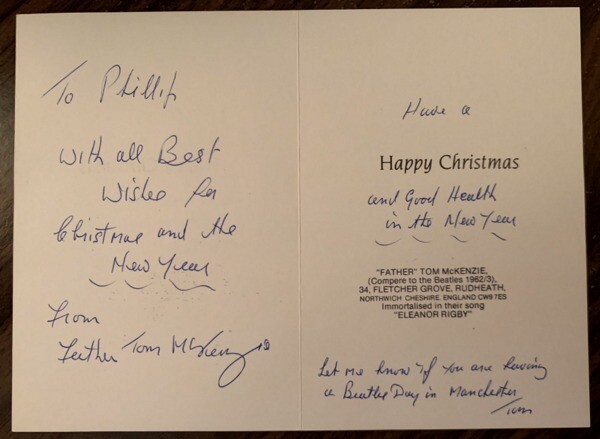 To Phillip
With all Best
Wishes for
Christmas and the
New Year
From
Father Tom McKenzie
Have a
Happy Christmas
and Good Health
in the New Year
"FATHER" TOM McKENZIE,
(Compere to the Beatles 1962/3),
34, FLETCHER GROVE, RUDHEATH,
NORTHWICH CHESHIRE. ENGLAND CW9 7ES
Immortalised in their song
"ELEANOR RIGBY"
Let me know if you are having
a Beatles Day in Manchester
Tom